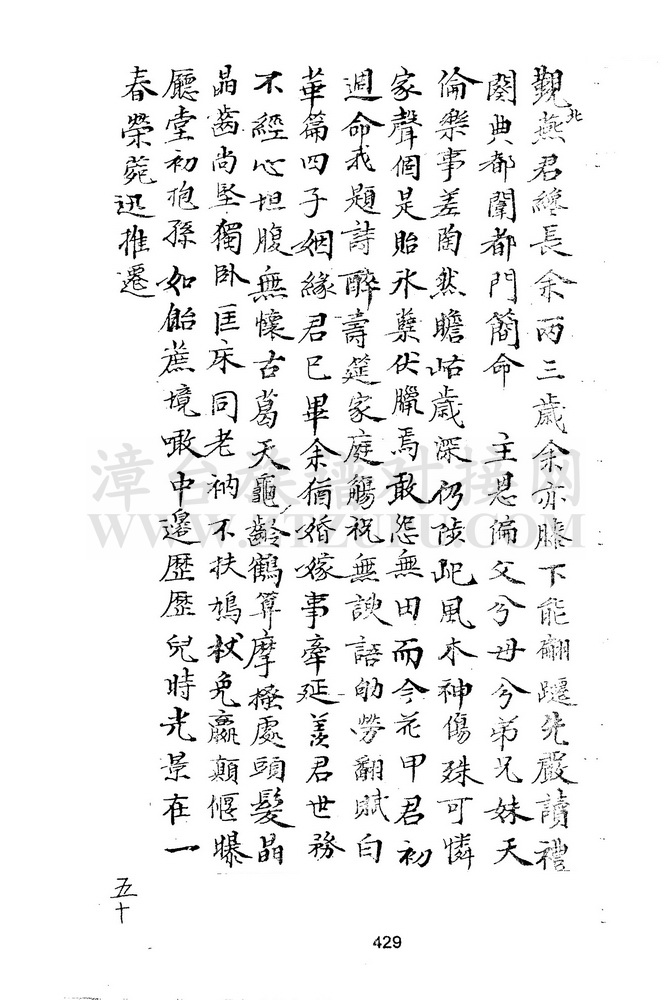 觀北燕君纔長余兩三歲余亦膝下能翩躚先嚴讀禮
闋典都闈都門簡命 主恩偏父兮母兮弟兄妹天
倫樂事差陶然瞻岵歲深仍陟屺風木神傷殊可憐
家聲個是貽冰蘗伏臘焉敢怨無田而今花甲君初
週命我題詩酹壽筵家庭觴祝無諛語劬勞翻賦白
華篇四子姻緣君已畢余猶婚嫁事牽延羨君世務
不經心坦腹無懷古葛天龜齡鶴算摩擾處頭髮晶
晶齒尚堅獨臥匡床同老衲不扶鳩杖免羸顛偃曝
廳堂初抱孫如飴蔗境噉中邊歷歷兒時光景在一
春榮菀迅推遷
五十
429
漳台族譜對接網
WWW.ZTZUPU.COM